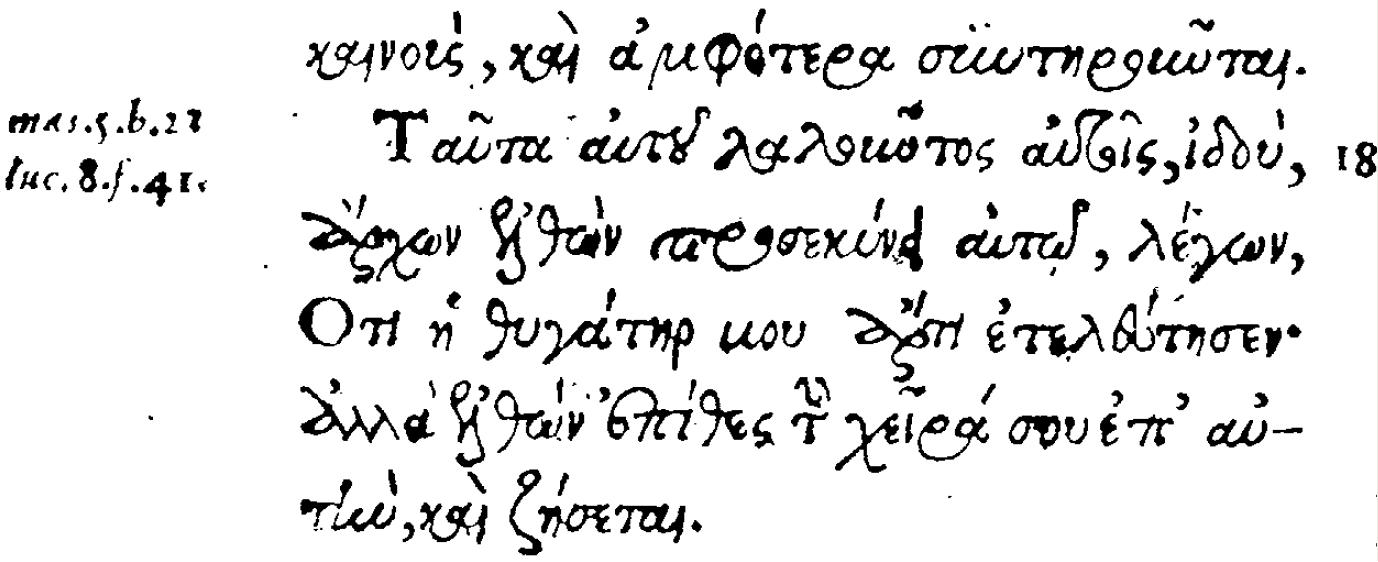 καινοὺς, καὶ ἀμφότερα συντηροῦνται.
mar.5.b.22 Ταῦτα αὐτοῦ λαλοῦντος αὐτοῖς, ἰδοὺ, 18
luc.8.f.41. ἄρχων ἐλθὼν προσεκύνει αὐτῷ, λέγων,
Ὅτι ἡ θυγάτηρ μου ἄρτι ἐτελεύτησεν·
ἀλλὰ ἐλθὼν ἐπίθες τὴν χεῖρά σου ἐπ' αὐ-
τὴν, καὶ ζήσεται.